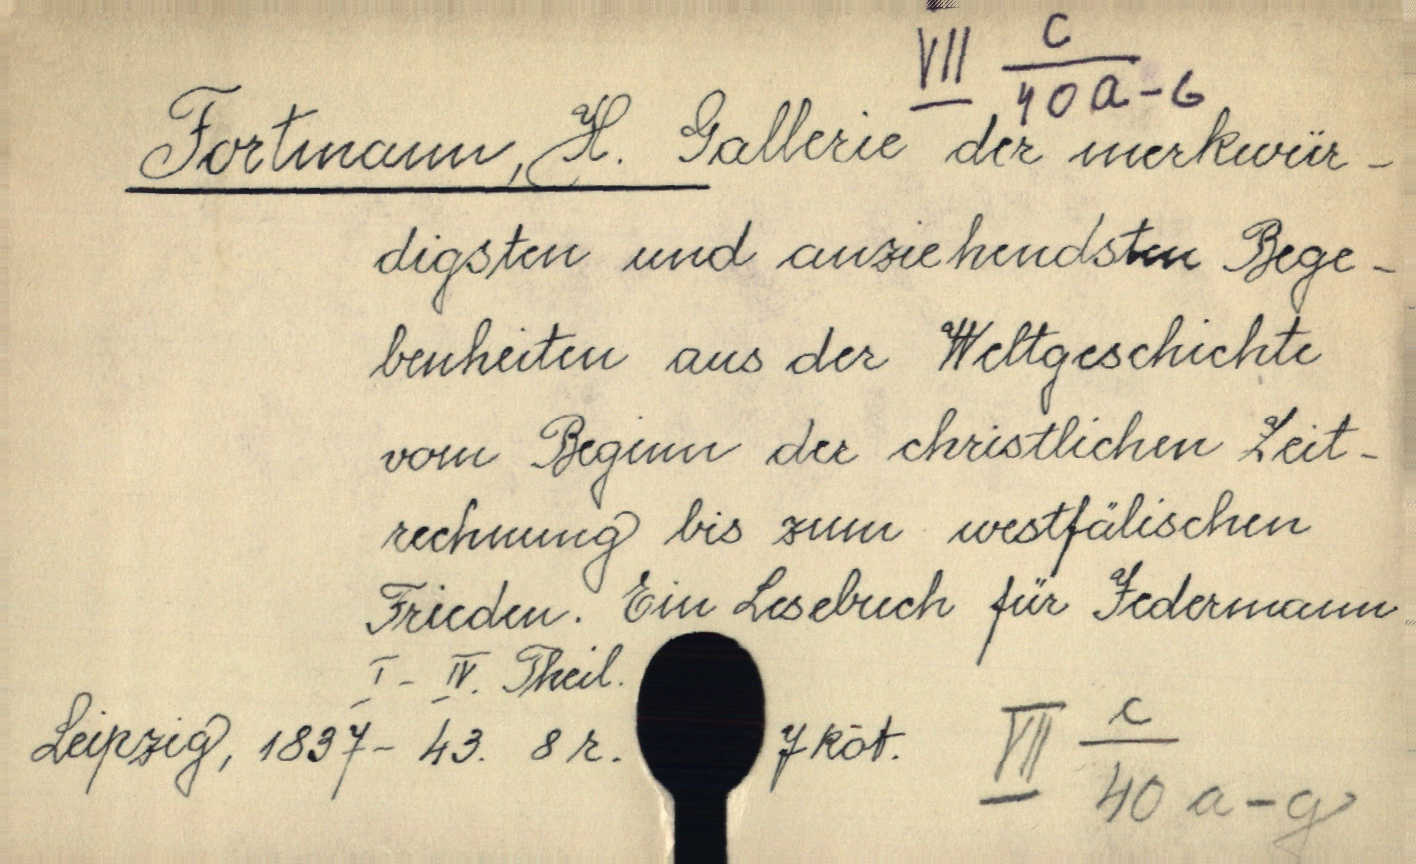 VII c
40 a-6
Fortmann, H. Gallerie der merkwür-
digsten und anziehendsten Bege-
benheiten aus der Weltgeschichte
vom Beginn der christlichen Zeit-
rechnung bis zum westfälischen
Frieden. Ein Lesebuch für Jedermann.
I - IV. Theil.
Leipzig, 1837-43. 8 r. 7 köt. VII c
40 a-g